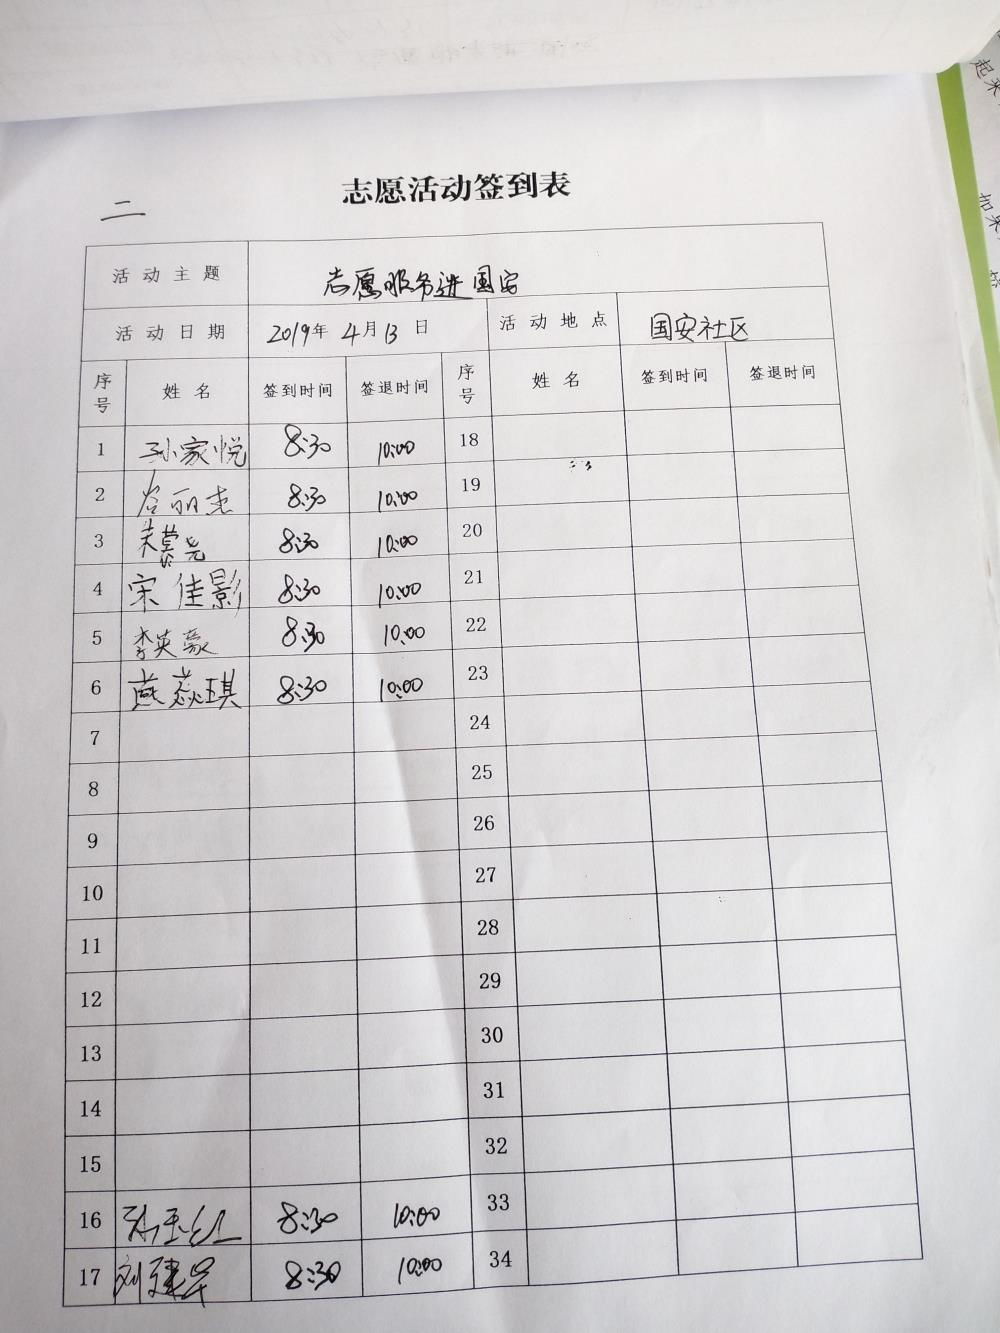 起来
加果
志愿活动签到表
二
活动主题 志愿服务进国安
活动日期 2019年 4月13日 活动地点 国安社区
序号 姓名 签到时间 签退时间 序号 姓名 签到时间 签退时间
1 孙家悦 8:30 10:00 18
2 谷丽杰 8:30 10:00 19
3 8:30 10:00 20
4 宋佳影 8:30 10:00 21
5 李英豪 8:30 10:00 22
6 燕焱琪 8:30 10:00 23
7 24
8 25
9 26
10 27
11 28
12 29
13 30
14 31
15 32
16 8:30 10:00 33
17 刘建 8:30 10:00 34